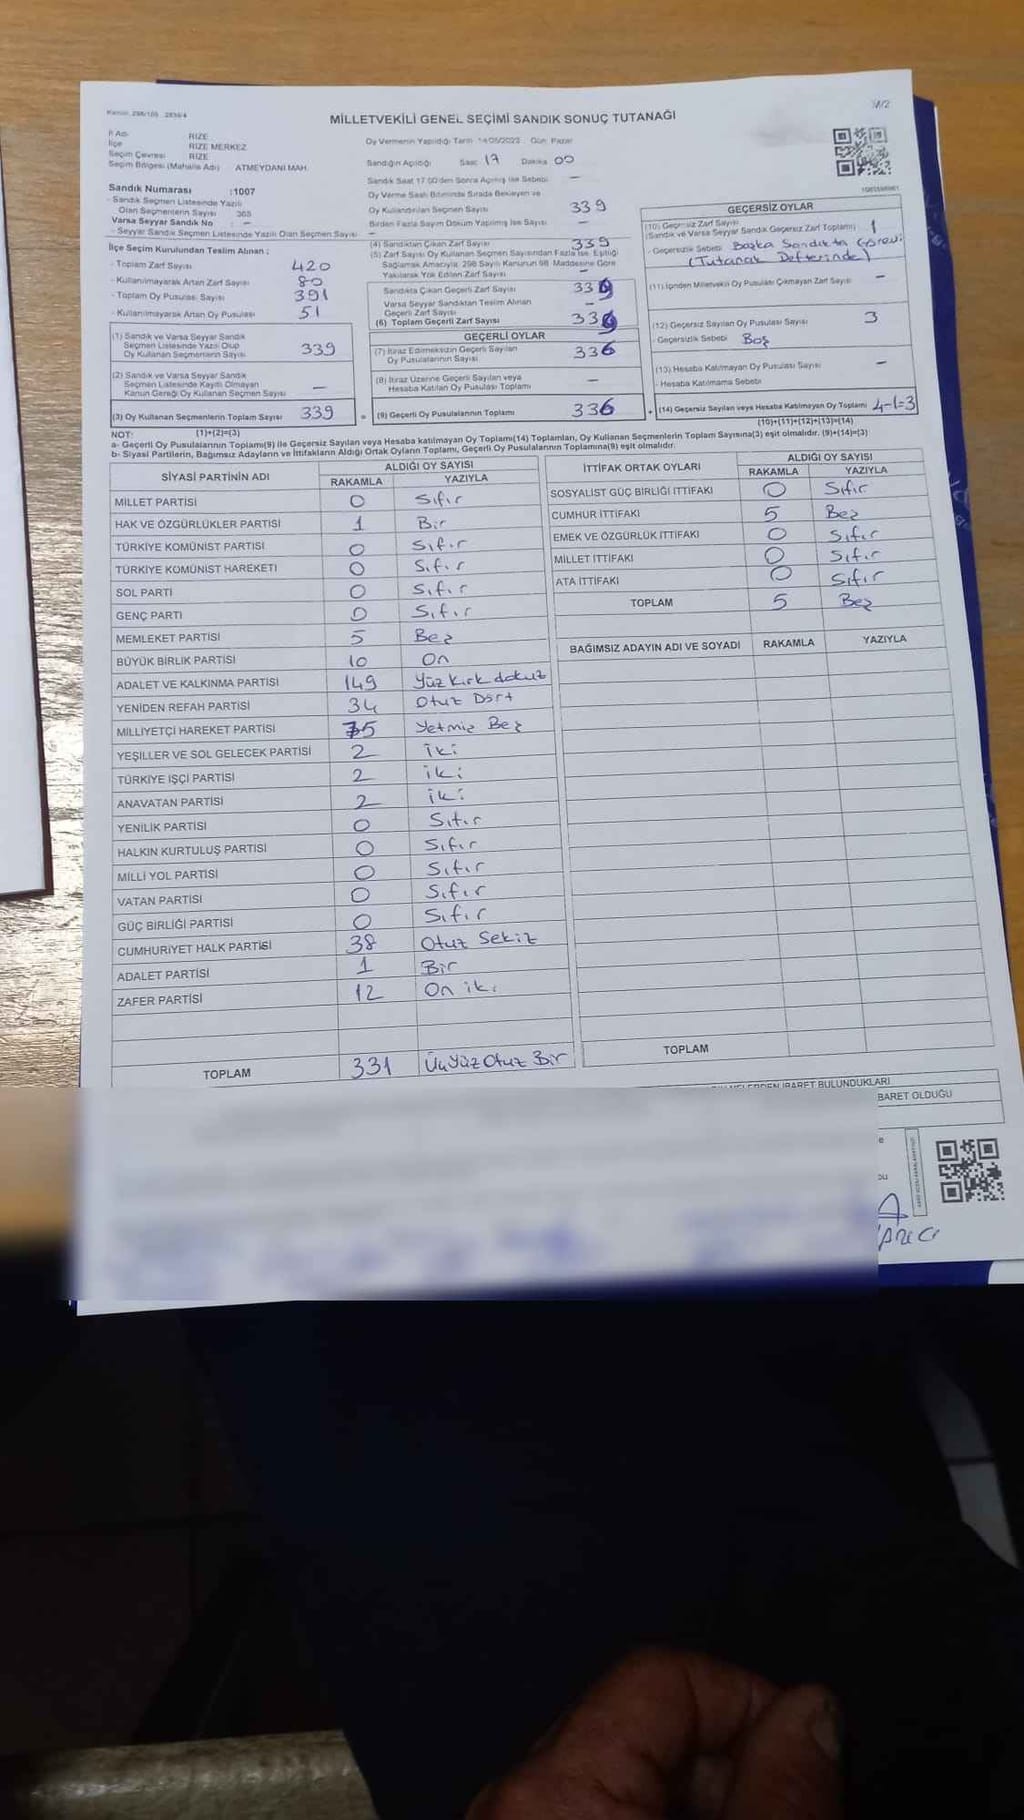 M/2
MİLLETVEKİLİ GENEL SEÇİMİ SANDIK SONUÇ TUTANAĞI
İl Adı RİZE
İlçe RİZE MERKEZ
Seçim Çevresi RİZE
Seçim Bölgesi (Mahalle Adı) ATMEYDANI MAH.
Oy Vermenin Yapıldığı Tarih 14/05/2023 Gün Pazar
Sandığın Açıldığı Saat 17 Dakika 00
Sandık Saat 17.00'den Sonra Açılmış İse Sebebi —
Sandık Numarası : 1007
- Sandık Seçmen Listesinde Yazılı Olan Seçmenlerin Sayısı 365
Varsa Seyyar Sandık No : —
- Seyyar Sandık Seçmen Listesinde Yazılı Olan Seçmen Sayısı —
Oy Verme Saati Bitiminde Sırada Bekleyen ve
Oy Kullandırılan Seçmen Sayısı 339
Birden Fazla Sayım Döküm Yapılmış İse Sayısı —
İlçe Seçim Kurulundan Teslim Alınan ;
- Toplam Zarf Sayısı 420
- Kullanılmayarak Artan Zarf Sayısı 80
- Toplam Oy Pusulası Sayısı 391
- Kullanılmayarak Artan Oy Pusulası 51
(1) Sandık ve Varsa Seyyar Sandık
Seçmen Listesinde Yazılı Olup
Oy Kullanan Seçmenlerin Sayısı 339
(2) Sandık ve Varsa Seyyar Sandık
Seçmen Listesinde Kayıtlı Olmayan
Kanun Gereği Oy Kullanan Seçmen Sayısı —
(3) Oy Kullanan Seçmenlerin Toplam Sayısı 339
(4) Sandıktan Çıkan Zarf Sayısı 339
(5) Zarf Sayısı Oy Kullanan Seçmen Sayısından Fazla İse, Eşitliği
Sağlamak Amacıyla, 298 Sayılı Kanunun 98. Maddesine Göre
Yakılarak Yok Edilen Zarf Sayısı —
Sandıkta Çıkan Geçerli Zarf Sayısı
Varsa Seyyar Sandıktan Teslim Alınan
Geçerli Zarf Sayısı —
(6) Toplam Geçerli Zarf Sayısı
GEÇERLİ OYLAR
(7) İtiraz Edilmeksizin Geçerli Sayılan
Oy Pusulalarının Sayısı 336
(8) İtiraz Üzerine Geçerli Sayılan veya
Hesaba Katılan Oy Pusulası Toplamı —
= (9) Geçerli Oy Pusulalarının Toplamı 336
GEÇERSİZ OYLAR
(10) Geçersiz Zarf Sayısı
(Sandık ve Varsa Seyyar Sandık Geçersiz Zarf Toplamı) 1
- Geçersizlik Sebebi Başka Sandıkta Görevli
(Tutanak Defterinde)
(11) İçinden Milletvekili Oy Pusulası Çıkmayan Zarf Sayısı —
(12) Geçersiz Sayılan Oy Pusulası Sayısı 3
- Geçersizlik Sebebi Boş
(13) Hesaba Katılmayan Oy Pusulası Sayısı —
- Hesaba Katılmama Sebebi
+ (14) Geçersiz Sayılan veya Hesaba Katılmayan Oy Toplamı 4-1=3
(1)+(2)=(3)
(10)+(11)+(12)+(13)=(14)
NOT:
a- Geçerli Oy Pusulalarının Toplamı(9) ile Geçersiz Sayılan veya Hesaba katılmayan Oy Toplamı(14) Toplamları, Oy Kullanan Seçmenlerin Toplam Sayısına(3) eşit olmalıdır. (9)+(14)=(3)
b- Siyasi Partilerin, Bağımsız Adayların ve İttifakların Aldığı Ortak Oyların Toplamı, Geçerli Oy Pusulalarının Toplamına(9) eşit olmalıdır.
SİYASİ PARTİNİN ADI ALDIĞI OY SAYISI
RAKAMLA YAZIYLA
MİLLET PARTİSİ 0 Sıfır
HAK VE ÖZGÜRLÜKLER PARTİSİ 1 Bir
TÜRKİYE KOMÜNİST PARTİSİ 0 Sıfır
TÜRKİYE KOMÜNİST HAREKETİ 0 Sıfır
SOL PARTİ 0 Sıfır
GENÇ PARTİ 0 Sıfır
MEMLEKET PARTİSİ 5 Beş
BÜYÜK BİRLİK PARTİSİ 10 On
ADALET VE KALKINMA PARTİSİ 149 Yüz Kırk dokuz
YENİDEN REFAH PARTİSİ 34 Otuz Dört
MİLLİYETÇİ HAREKET PARTİSİ 75 Yetmiş Beş
YEŞİLLER VE SOL GELECEK PARTİSİ 2 iki
TÜRKİYE İŞÇİ PARTİSİ 2 iki
ANAVATAN PARTİSİ 2 iki
YENİLİK PARTİSİ 0 Sıfır
HALKIN KURTULUŞ PARTİSİ 0 Sıfır
MİLLİ YOL PARTİSİ 0 Sıfır
VATAN PARTİSİ 0 Sıfır
GÜÇ BİRLİĞİ PARTİSİ 0 Sıfır
CUMHURİYET HALK PARTİSİ 38 Otuz Sekiz
ADALET PARTİSİ 1 Bir
ZAFER PARTİSİ 12 On iki
TOPLAM 331 Üçyüz Otuz Bir
İTTİFAK ORTAK OYLARI ALDIĞI OY SAYISI
RAKAMLA YAZIYLA
SOSYALİST GÜÇ BİRLİĞİ İTTİFAKI 0 Sıfır
CUMHUR İTTİFAKI 5 Beş
EMEK VE ÖZGÜRLÜK İTTİFAKI 0 Sıfır
MİLLET İTTİFAKI 0 Sıfır
ATA İTTİFAKI 0 Sıfır
TOPLAM 5 Beş
BAĞIMSIZ ADAYIN ADI VE SOYADI RAKAMLA YAZIYLA
TOPLAM
İBARET BULUNDUKLARI
BARET OLDUĞU